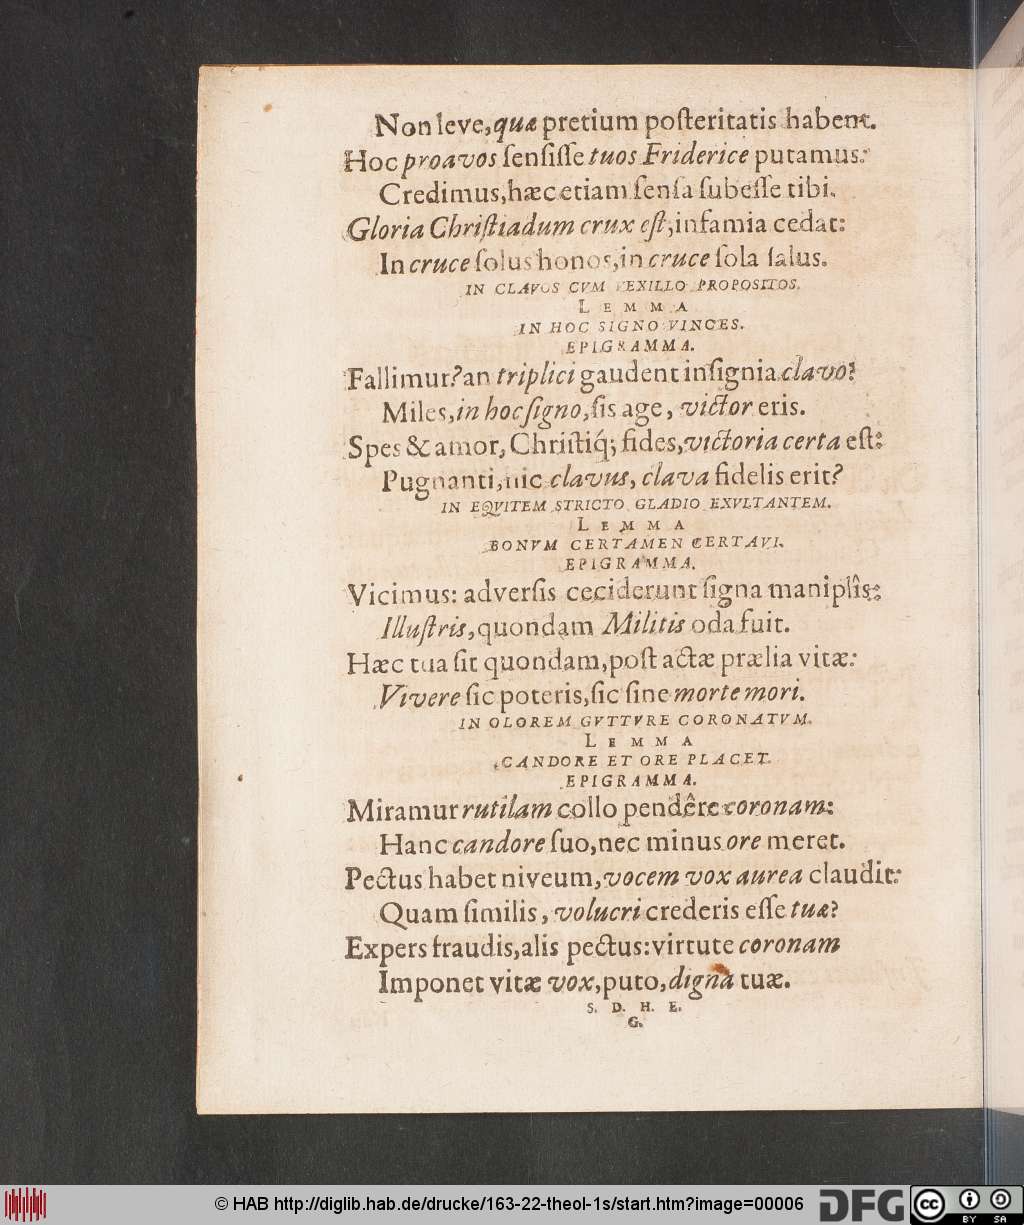 Non leve, quæ pretium poſteritatis habent.
Hoc proavos ſenſiſſe tuos Friderice putamus:
Credimus, hæc etiam ſenſa ſubeſſe tibi.
Gloria Chriſtiadum crux eſt, infamia cedat:
In cruce ſolus honos, in cruce ſola ſalus.
IN CLAVOS CVM VEXILLO PROPOSITOS.
LEMMA
IN HOC SIGNO VINCES.
EPIGRAMMA.
Fallimur? an triplici gaudent inſignia clavo?
Miles, in hoc ſigno, ſis age, victor eris.
Spes & amor, Chriſtiq́; fides, victoria certa eſt:
Pugnanti, hic clavus, clava fidelis erit?
IN EQVITEM STRICTO GLADIO EXVLTANTEM.
LEMMA
BONVM CERTAMEN CERTAVI.
EPIGRAMMA.
Vicimus: adverſis ceciderunt ſigna maniplîs:
Illuſtris, quondam Militis oda fuit.
Hæc tua ſit quondam, poſt actæ prælia vitæ:
Vivere ſic poteris, ſic ſine morte mori.
IN OLOREM GVTTVRE CORONATVM.
LEMMA
CANDORE ET ORE PLACET.
EPIGRAMMA.
Miramur rutilam collo pendêre coronam:
Hanc candore ſuo, nec minus ore meret.
Pectus habet niveum, vocem vox aurea claudit:
Quam ſimilis, volucri crederis eſſe tuæ?
Expers fraudis, alis pectus: virtute coronam
Imponet vitæ vox, puto, digna tuæ.
S. D. H. E.
G.
© HAB http://diglib.hab.de/drucke/163-22-theol-1s/start.htm?image=00006
DFG
cc BY SA